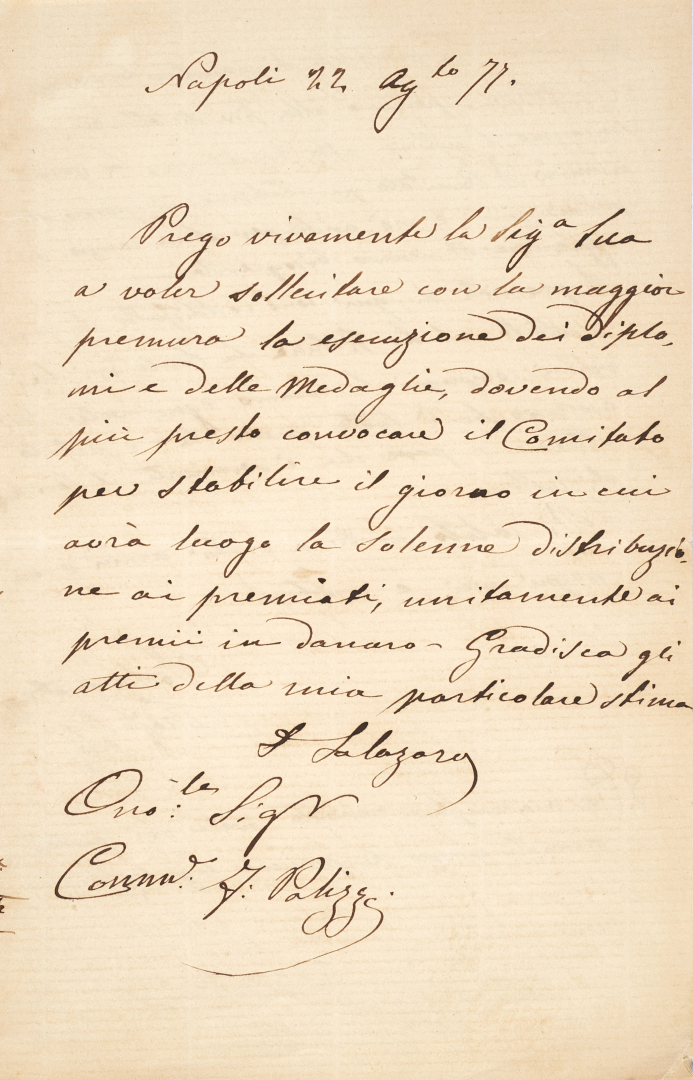 Napoli 22 Ag.to 77.
Prego vivamente la Sig.a Sua
a voler sollecitare con la maggior
premura la esecuzione dei diplo,
mi e delle Medaglie, dovendo al
più presto convocare il Comitato
per stabilire il giorno in cui
avrà luogo la solenne distribuzio,
ne ai premiati, unitamente ai
premii in danaro - Gradisca gli
atti della mia particolare stima
Salazaro
Ono:le Sigr
Comm.e F. Palizzi